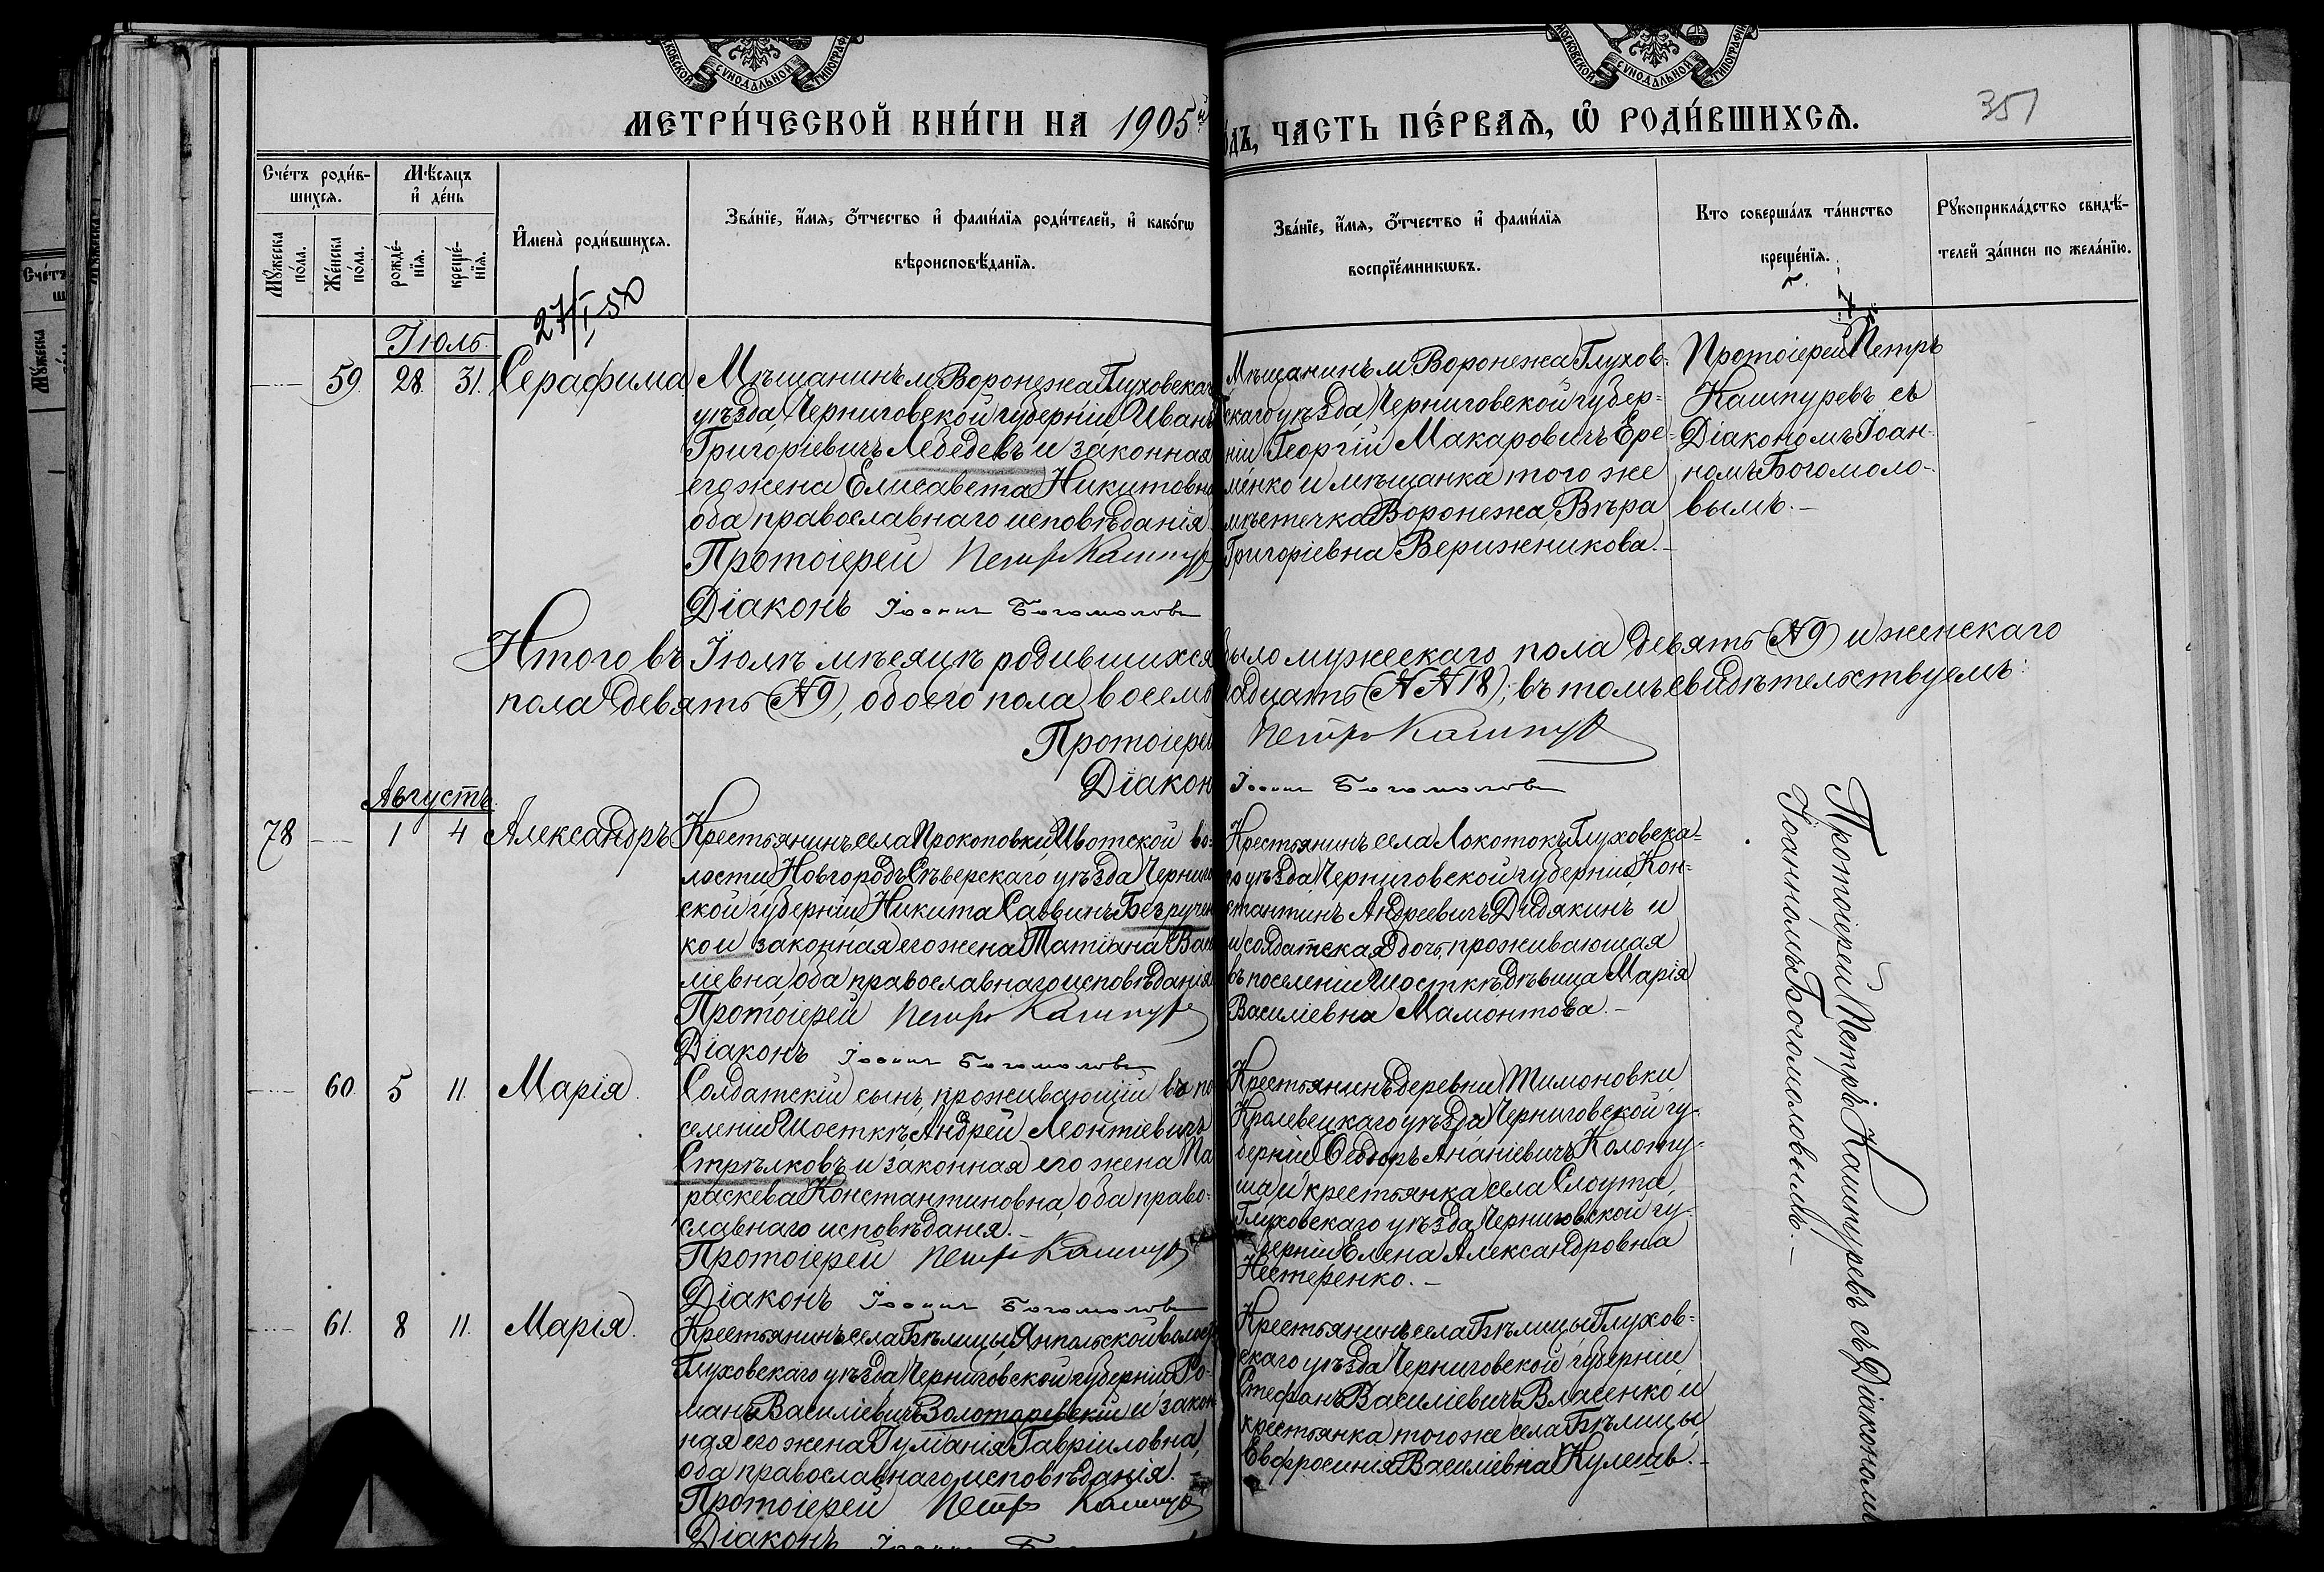 МОСКОВСКОЙ СѴНОДАЛЬНОЙ ТИПОГРАФІИ
МОСКОВСКОЙ СѴНОДАЛЬНОЙ ТИПОГРАФІИ
МЕТРИ́ЧЕСКОЙ КНИ́ГИ НА 1905й
ДЪ, ЧАСТЬ ПЕ́РВАѦ, Ѽ РОДИ́ВШИХСѦ.
351
Сче́тъ роди́в-
шихсѧ.
Мꙋ́жеска по́ла.
Же́нска по́ла.
Мѣ́сѧцъ
и҆ де́нь
рожде́-нїѧ.
креще́-нїѧ.
И҆мена̀ роди́вшихсѧ.
Зва́нїе, и҆́мѧ, ѻ҆́тчество и҆ фами́лїѧ роди́телей, и҆ како́гѡ
вѣроисповѣ́данїѧ.
Зва́нїе, и҆́мѧ, ѻ҆́тчество и҆ фами́лїѧ
воспрїе́мникѡвъ.
Кто соверша́лъ та́инство
креще́нїѧ.
Рꙋкоприкла́дство свидѣ́-
телей за́писи по жела́нїю.
27/I-50
Іюль.
59. 28. 31. Серафима
Мѣщанинъ м. Воронежа Глуховскаго
уѣзда, Черниговской губерніи Иванъ
Григоріевичъ Лебедевъ и законная
его жена Елисавета Никитовна
оба православнаго исповѣданія.
Протоіерей Петръ Кашпур
Діаконъ Іоаннъ Богомоловъ
Мѣщанинъ м. Воронежа Глухов-
скаго уѣзда, Черниговской губер-
ніи Георгій Макаровичъ Ере-
менко и мѣщанка того же
мѣстечка Воронежа, Вѣра
Григоріевна Верижникова.-
Протоіерей Петръ
Кашпуревъ съ
Діакономъ Іоан-
номъ Богомоло-
вымъ.-
Итого въ Іюлѣ мѣсяцѣ родившихся было мужескаго пола девять (№9) и женскаго
пола девять (№9), обоего пола восемнадцать (№№18); въ томъ свидѣтельствуемъ:
Протоіерей Петръ Кашпур
Діакон Іоаннъ Богомоловъ
Августъ.
78 1 4 Александръ
Крестьянинъ села Прокоповки, Ивотской во-
лости Новгородъ Сѣверскаго уѣзда Чернигов
ской губерніи Никита Саввинъ Безручен
ко и законная его жена Татіана Васи
ліевна, оба православнаго исповѣданія.
Протоіерей Петръ Кашпур
Діаконъ Іоаннъ Богомоловъ
Крестьянинъ села Локотокъ Глуховска-
го уѣзда Черниговской губерніи Кон-
стантинъ Андреевичъ Дидякинъ и
и солдатская дочь, проживающая
въ поселеніи Шосткѣ, дѣвица Марія
Василіевна Мамонтова.-
60. 5 11. Марія.
Солдатскій сынъ, проживающій въ по
селеніи Шосткѣ, Андрей Леонтіевичъ
Стрѣлковъ и законная его жена Па
раскева Константиновна, оба право-
славнаго исповѣданія.-
Протоіерей Петръ Кашпур
Діаконъ Іоаннъ Богомоловъ
Крестьянинъ деревни Тимоновки
Кролевецкаго уѣзда Черниговской гу-
берніи Ѳеодоръ Ананіевичъ Колоту-
ша и крестьянка села Слоута,
Глуховскаго уѣзда Черниговской гу-
берніи Елена Александровна
Нестеренко.-
61. 8 11. Марія.
Крестьянинъ села Бѣлицы, Янпольской волост
Глуховскаго уѣзда Черниговской губерніи Ро-
манъ Василіевичъ Золотаревскій и закон
ная его жена Іуліанія Гавріиловна,
оба православнаго исповѣданія.-
Протоіерей Петръ Кашпур
Діаконъ
Крестьянинъ села Бѣлицы Глухов-
скаго уѣзда Черниговской губерніи
Стефанъ Василіевичъ Власенко и
крестьянка того же села Бѣлицы,
Евфросинія Василіевна Кулешъ.-
Протоіерей Петръ Кашпуревъ съ Діакономъ
Іоанномъ Богомоловымъ.-